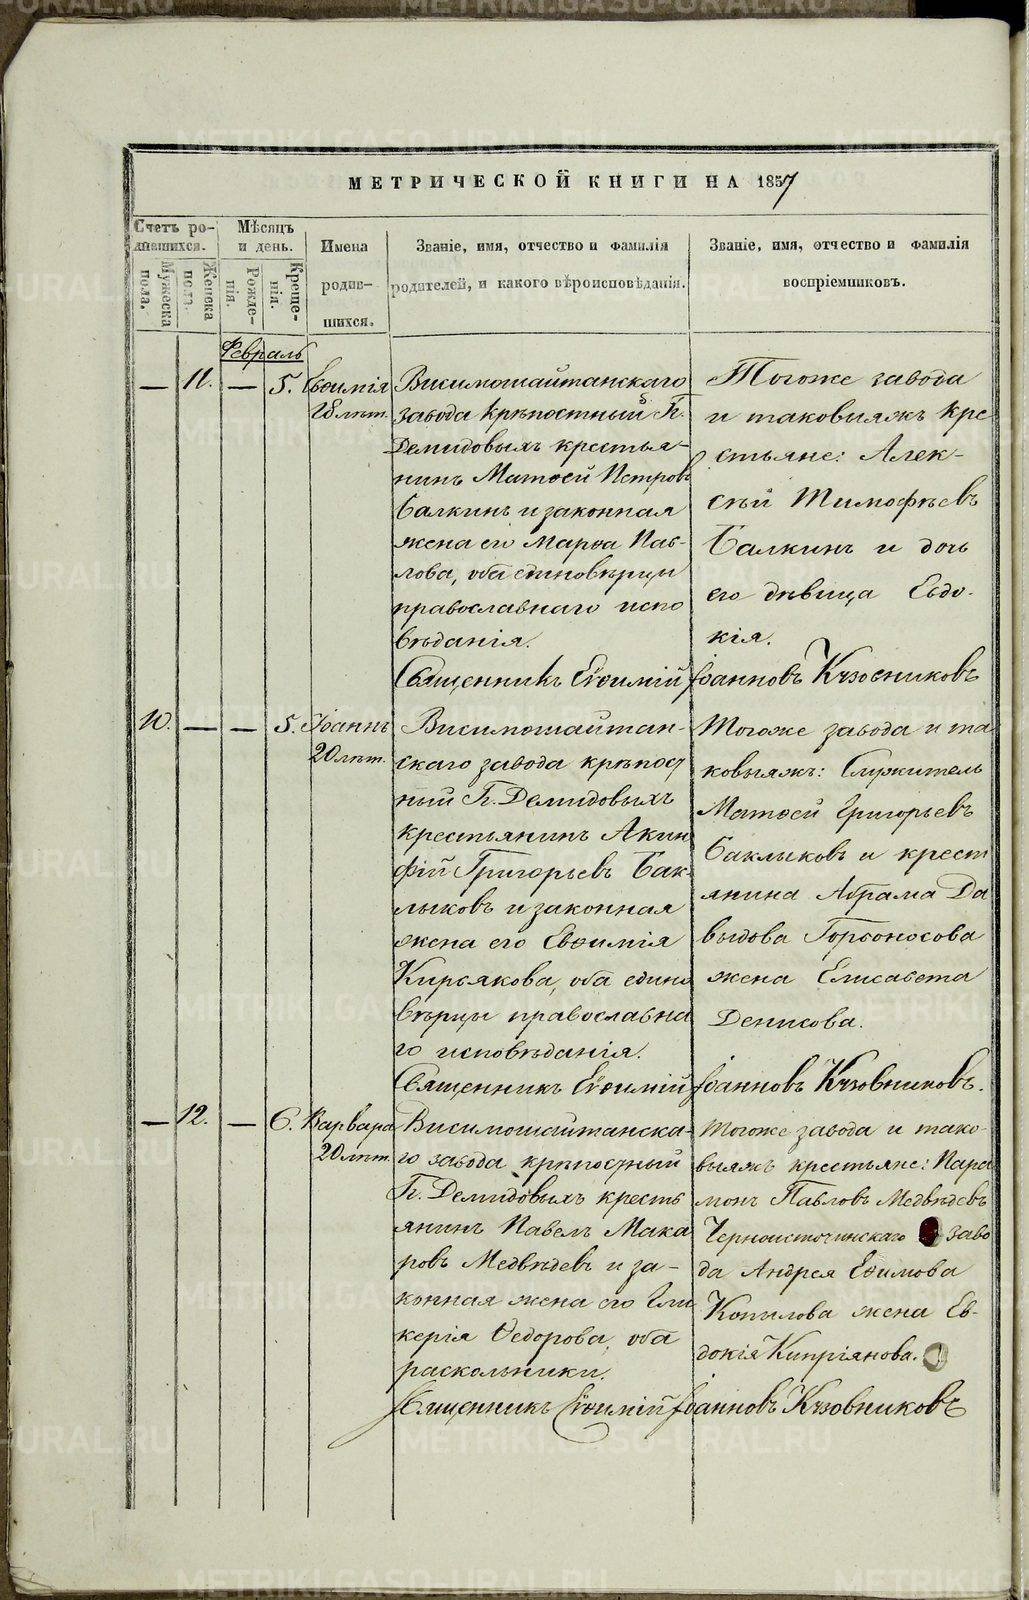 МЕТРИЧЕСКОЙ КНИГИ НА 1857
Счетъ ро-
дившихся.
Мѣсяцъ
и день.
Мужеска
пола.
Женска
пола.
Рожде-
нія.
Креще-
нія.
Имена
родив-
шихся.
Званіе, имя, отчество и фамилія
родителей, и какого вѣроисповѣданія.
Званіе, имя, отчество и фамилія
воспріемниковъ.
Февраль
— 11. — 5. Евѳимія
18 лѣт.
Висимошайтанскаго
завода крѣпостный Г.
Демидовыхъ крестья-
нинъ Матѳей Петровъ
Балкинъ и законная
жена его Марѳа Пав-
лова, оба единовѣрцы
православнаго испо
вѣданія.
Тогоже завода
и таковыяжъ кре
стьяне: Алек-
сѣй Тимофѣевъ
Балкинъ и дочь
его дѣвица Евдо-
кія.
Священникъ Евѳимій Іоанновъ Кузовниковъ
10. — — 5. Іоаннъ
20 лѣт.
Висимошайтан-
скаго завода крѣпост
ный Г. Демидовыхъ
крестьянинъ Акин
фій Григорьевъ Бак
лыковъ и законная
жена его Евѳимія
Кирьякова, оба едино
вѣрцы православна
го исповѣданія.
Тогоже завода и та
ковыяжъ: Служитель
Матѳей Григорьевъ
Баклыковъ и крест
янина Абрама Да
выдова Горбоносова
жена Елисавета
Денисова.
Священникъ Евѳимій Іоанновъ Кузовниковъ.
— 12. — 6. Варвара
20 лѣт.
Висимошайтанска-
го завода крѣпостный
Г. Демидовыхъ кресть
янинъ Павелъ Мака
ровъ Медвѣдевъ и за-
конная жена его Гли
керія Ѳедорова, оба
раскольники.
Тогоже завода и тако-
выяжъ крестьяне: Пара
монъ Павловъ Медвѣдевъ
Черноисточинскаго заво
да Андрея Евѳимова
Копылова жена Ев-
докія Кипріянова.
Священникъ Евѳимій Іоанновъ Кузовниковъ
METRIKI.GASO-URAL.RU